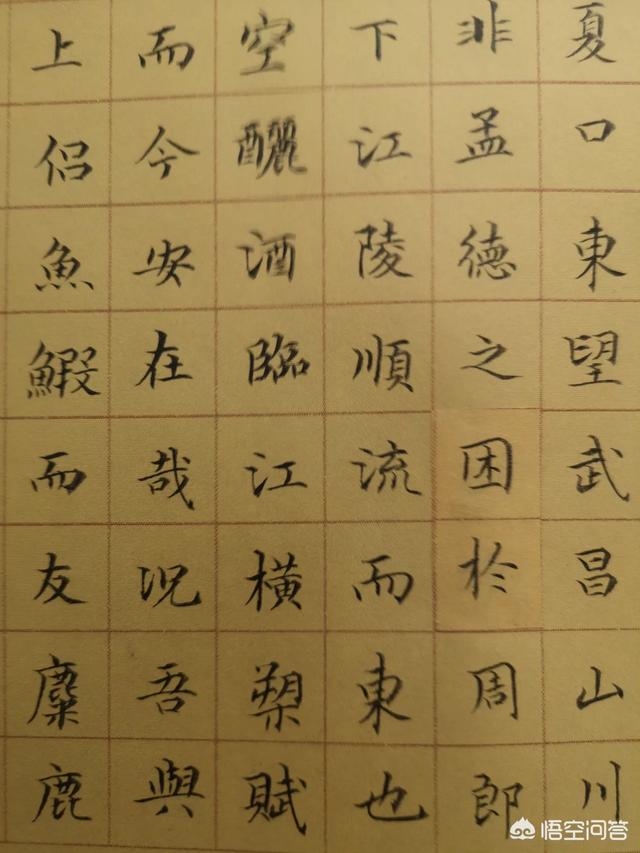 夏口東望武昌山川
非孟德之困於周郎
下江陵順流而東也
空釃酒臨江橫槊賦
而今安在哉況吾與
上侣魚鰕而友麋鹿
悟空问答